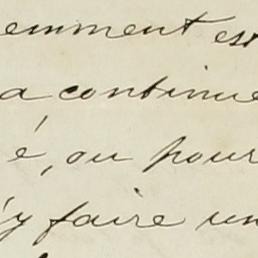 emment est
a continue
é, ou pour
'y faire un